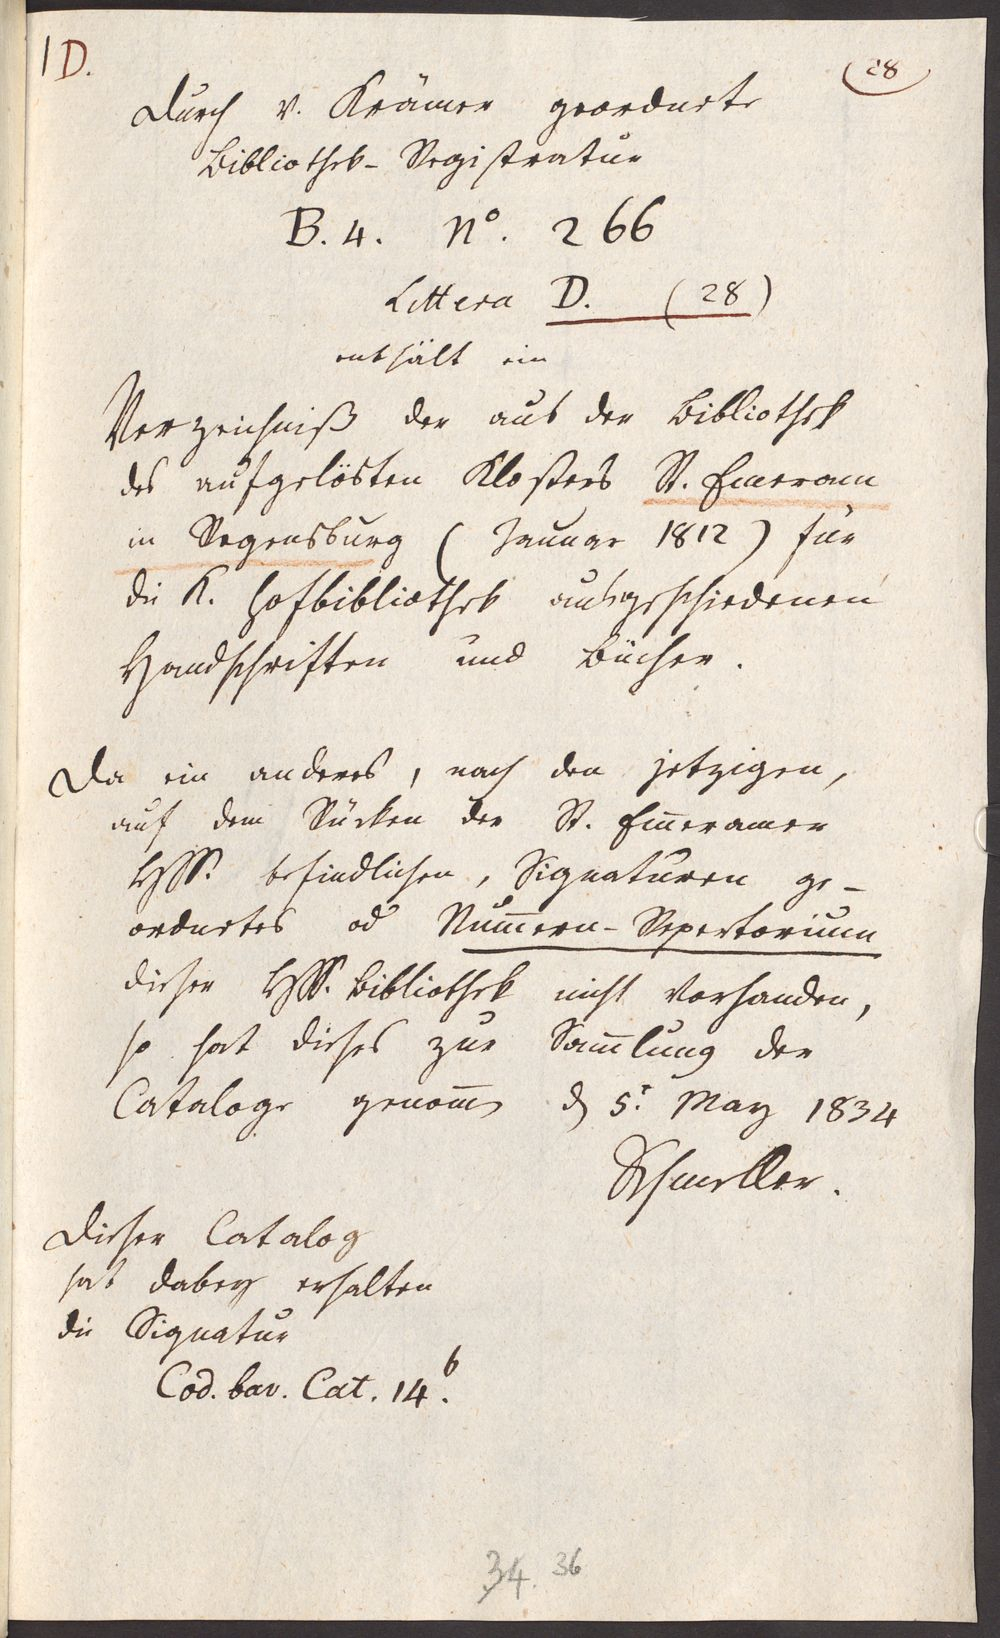 1D.
28
Durch v. Krämer geordnete
Bibliothek-Registratur
B. 4. No. 266
Littera D. (28)
enthält ein
Verzeichniß der aus der Bibliothek
des aufgelösten Klosters St. Emeram
in Regensburg (Januar 1812) für
die K. Hofbibliothek ausgeschiedenen
Handschriften und Bücher.
Da ein anderes, nach den jetzigen,
auf dem Rücken der St. Em̅eramer
HSS. befindlichen, Signaturen ge-
ordnetes od Num̅ern-Repertorium
dieser HSS. Bibliothek nicht vorhanden,
so hat dieses zur Sam̅lung der
Cataloge genom̅en d 5t. May 1834
Schmeller.
Dieser Catalog
hat dabey erhalten
die Signatur
Cod. bav. Cat. 14b.
34. 36